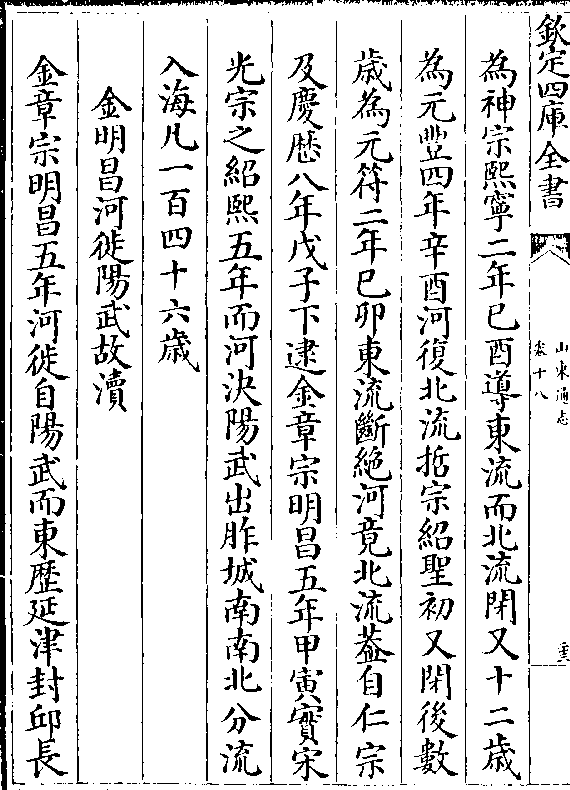 欽定四庫全書
山東通志
卷十八
為神宗熙寧二年巳酉導東流而北流閉又十二歲
為元豐四年辛酉河復北流哲宗紹聖初又閉後數
歲為元符二年巳卯東流斷絶河竟北流葢自仁宗
及慶歴八年戊子下逮金章宗明昌五年甲寅實宋
光宗之紹熙五年而河決陽武出胙城南南北分流
入海凡一百四十六歲
金明昌河徙陽武故瀆
金章宗明昌五年河徙自陽武而東歴延津封邱長